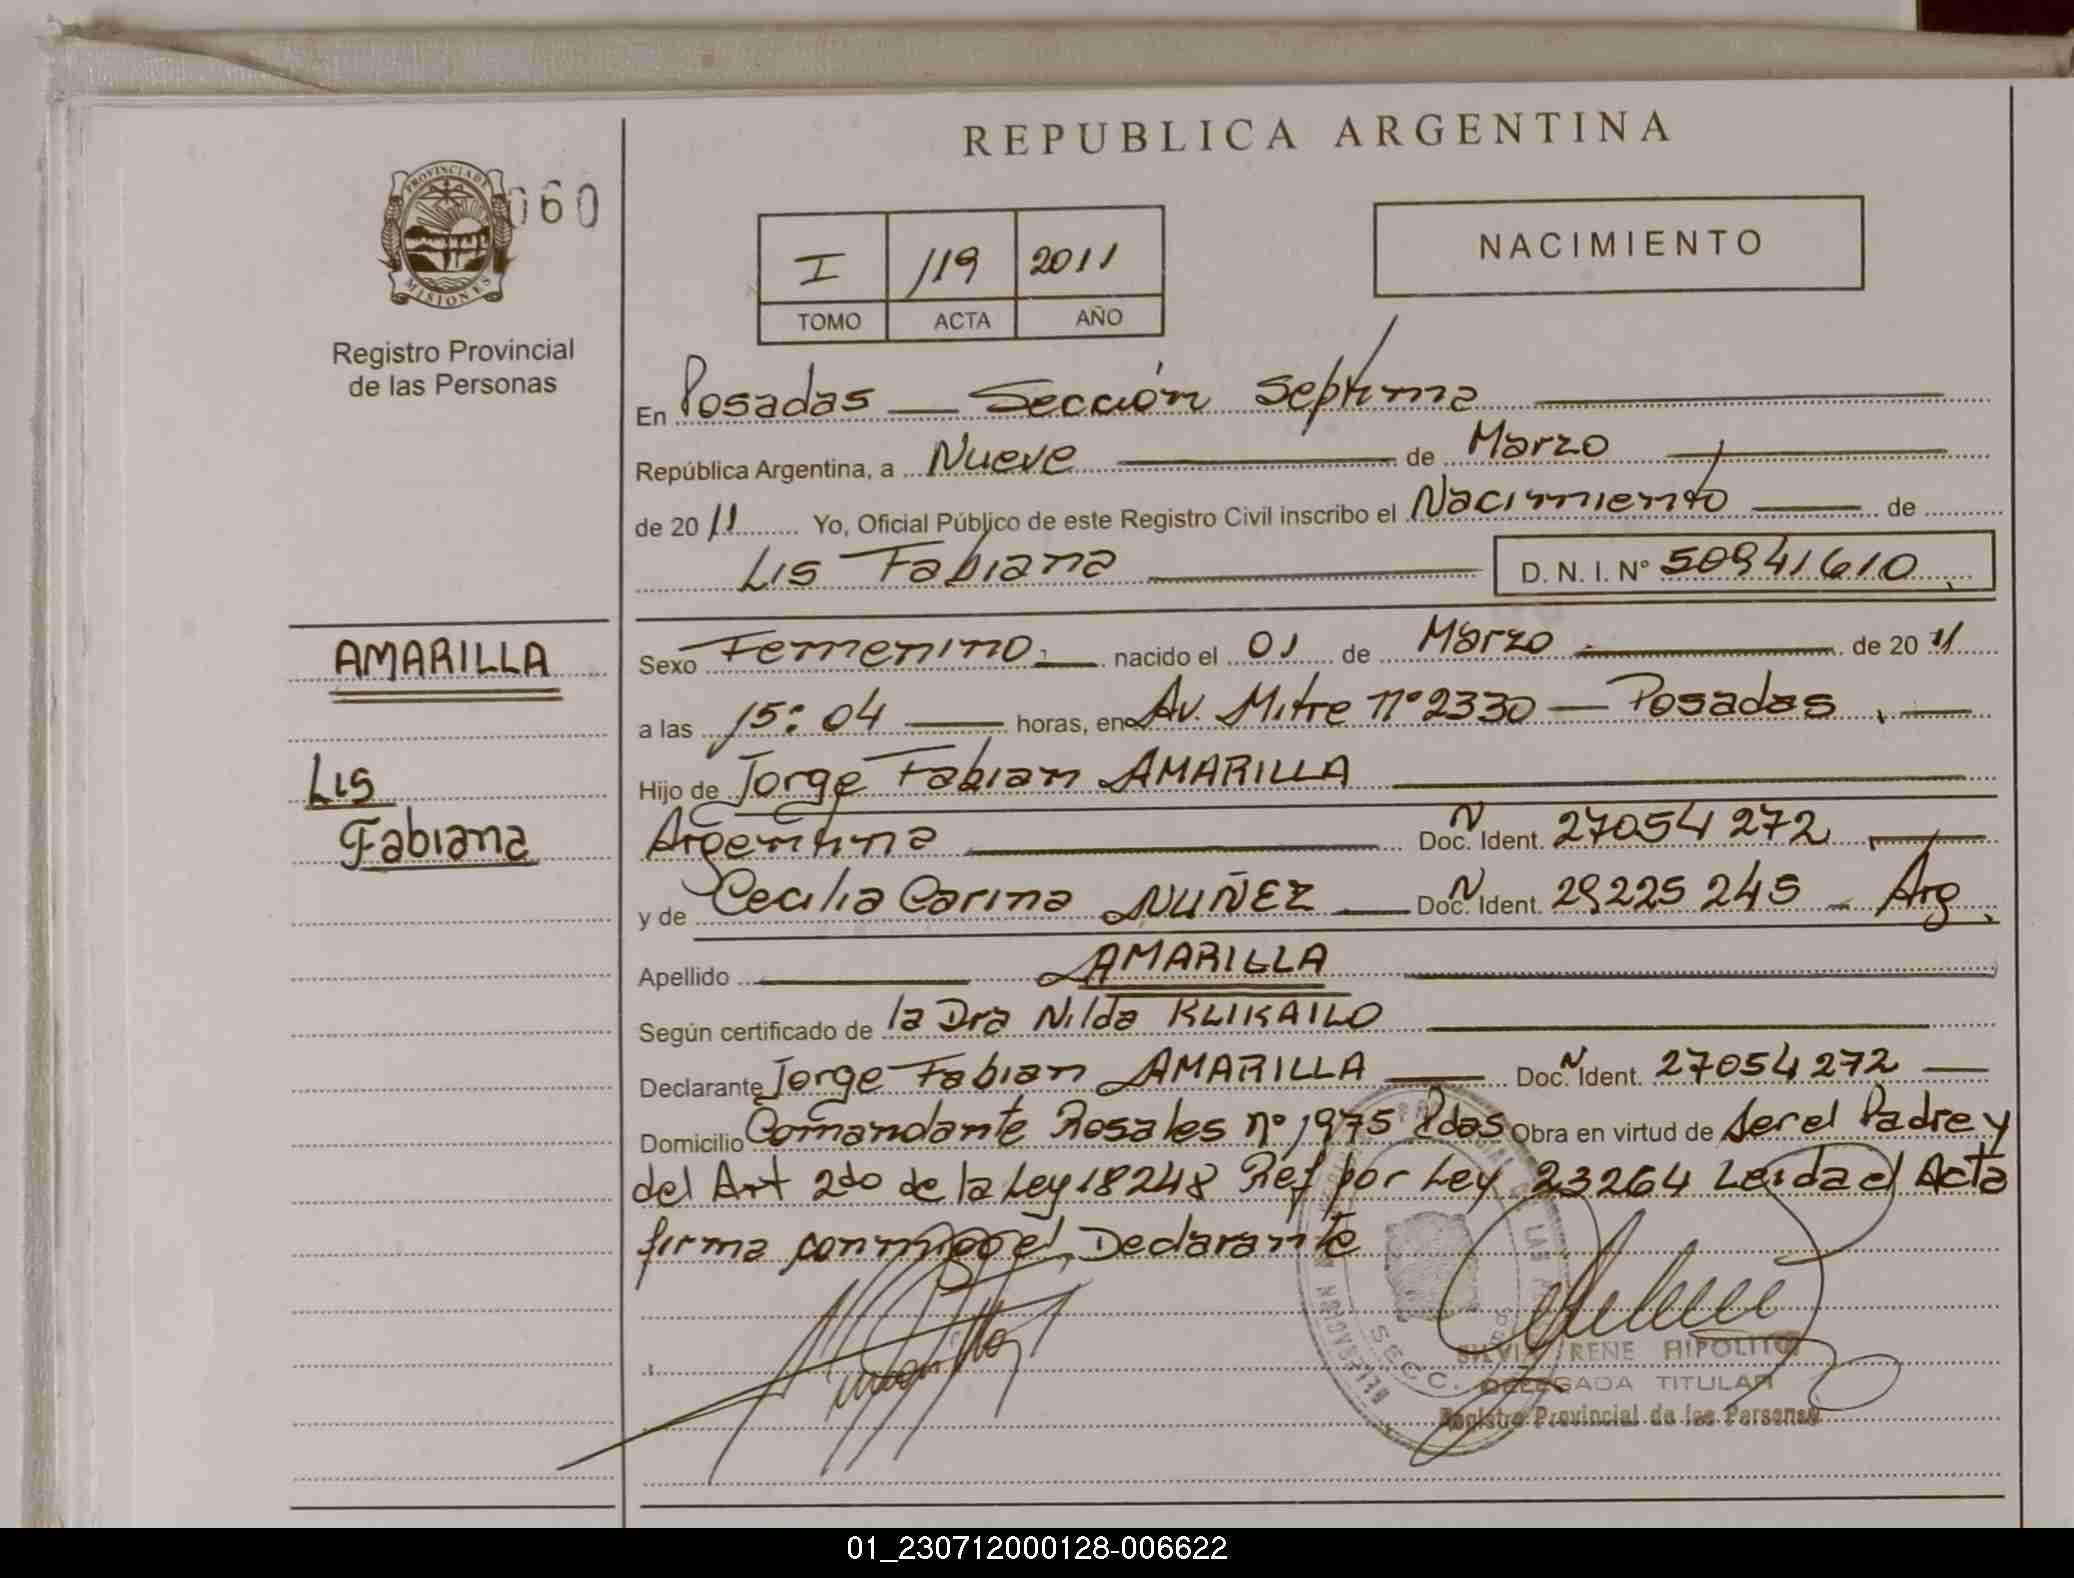 REPUBLICA ARGENTINA
PROVINCIA DE
MISIONES
060
Registro Provincial
de las Personas
I 119 2011
TOMO ACTA AÑO
NACIMIENTO
En Posadas — Sección Septima
República Argentina, a Nueve de Marzo
de 20 11 Yo, Oficial Público de este Registro Civil inscribo el Nacimiento de
Lis Fabiana D. N. I. Nº 50941610
AMARILLA
Lis
Fabiana
Sexo Femenino nacido el 01 de Marzo de 20 11
a las 15:04 horas, en Av. Mitre nº 2330 — Posadas
Hijo de Jorge Fabian AMARILLA
Argentina Doc. N Ident. 27054272
y de Cecilia Carina NUÑEZ — Doc. N Ident. 29225245 - Arg.
Apellido AMARILLA
Según certificado de la Dra Nilda KLIKAILO
Declarante Jorge Fabian AMARILLA Doc. N Ident. 27054272
Domicilio Comandante Rosales nº 1975 Pdas Obra en virtud de ser el Padre y
del Art 2do de la Ley 18248 Ref por Ley 23264 Leida el Acta
firma conmigo el Declarante
SECC.
SILVIA IRENE HIPOLITO
DELEGADA TITULAR
Registro Provincial de las Personas
01_230712000128-006622